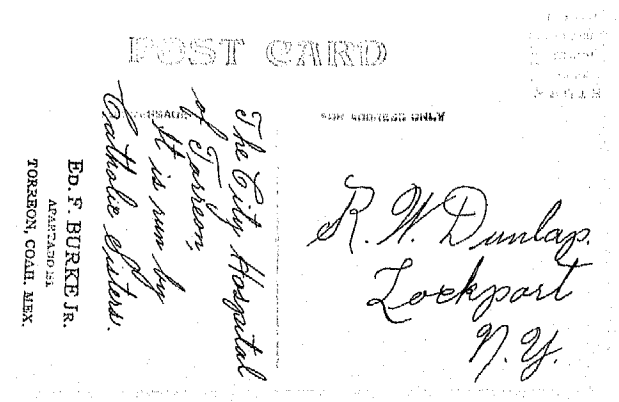 POST CARD
FOR ADDRESS ONLY
The City Hospital
of Torreon,
It is run by
Catholic Sisters.
ED. F. BURKE JR.
APARTADO
TORREON, COAH. MEX.
R. W. Dunlap.
Lockport
N. Y.